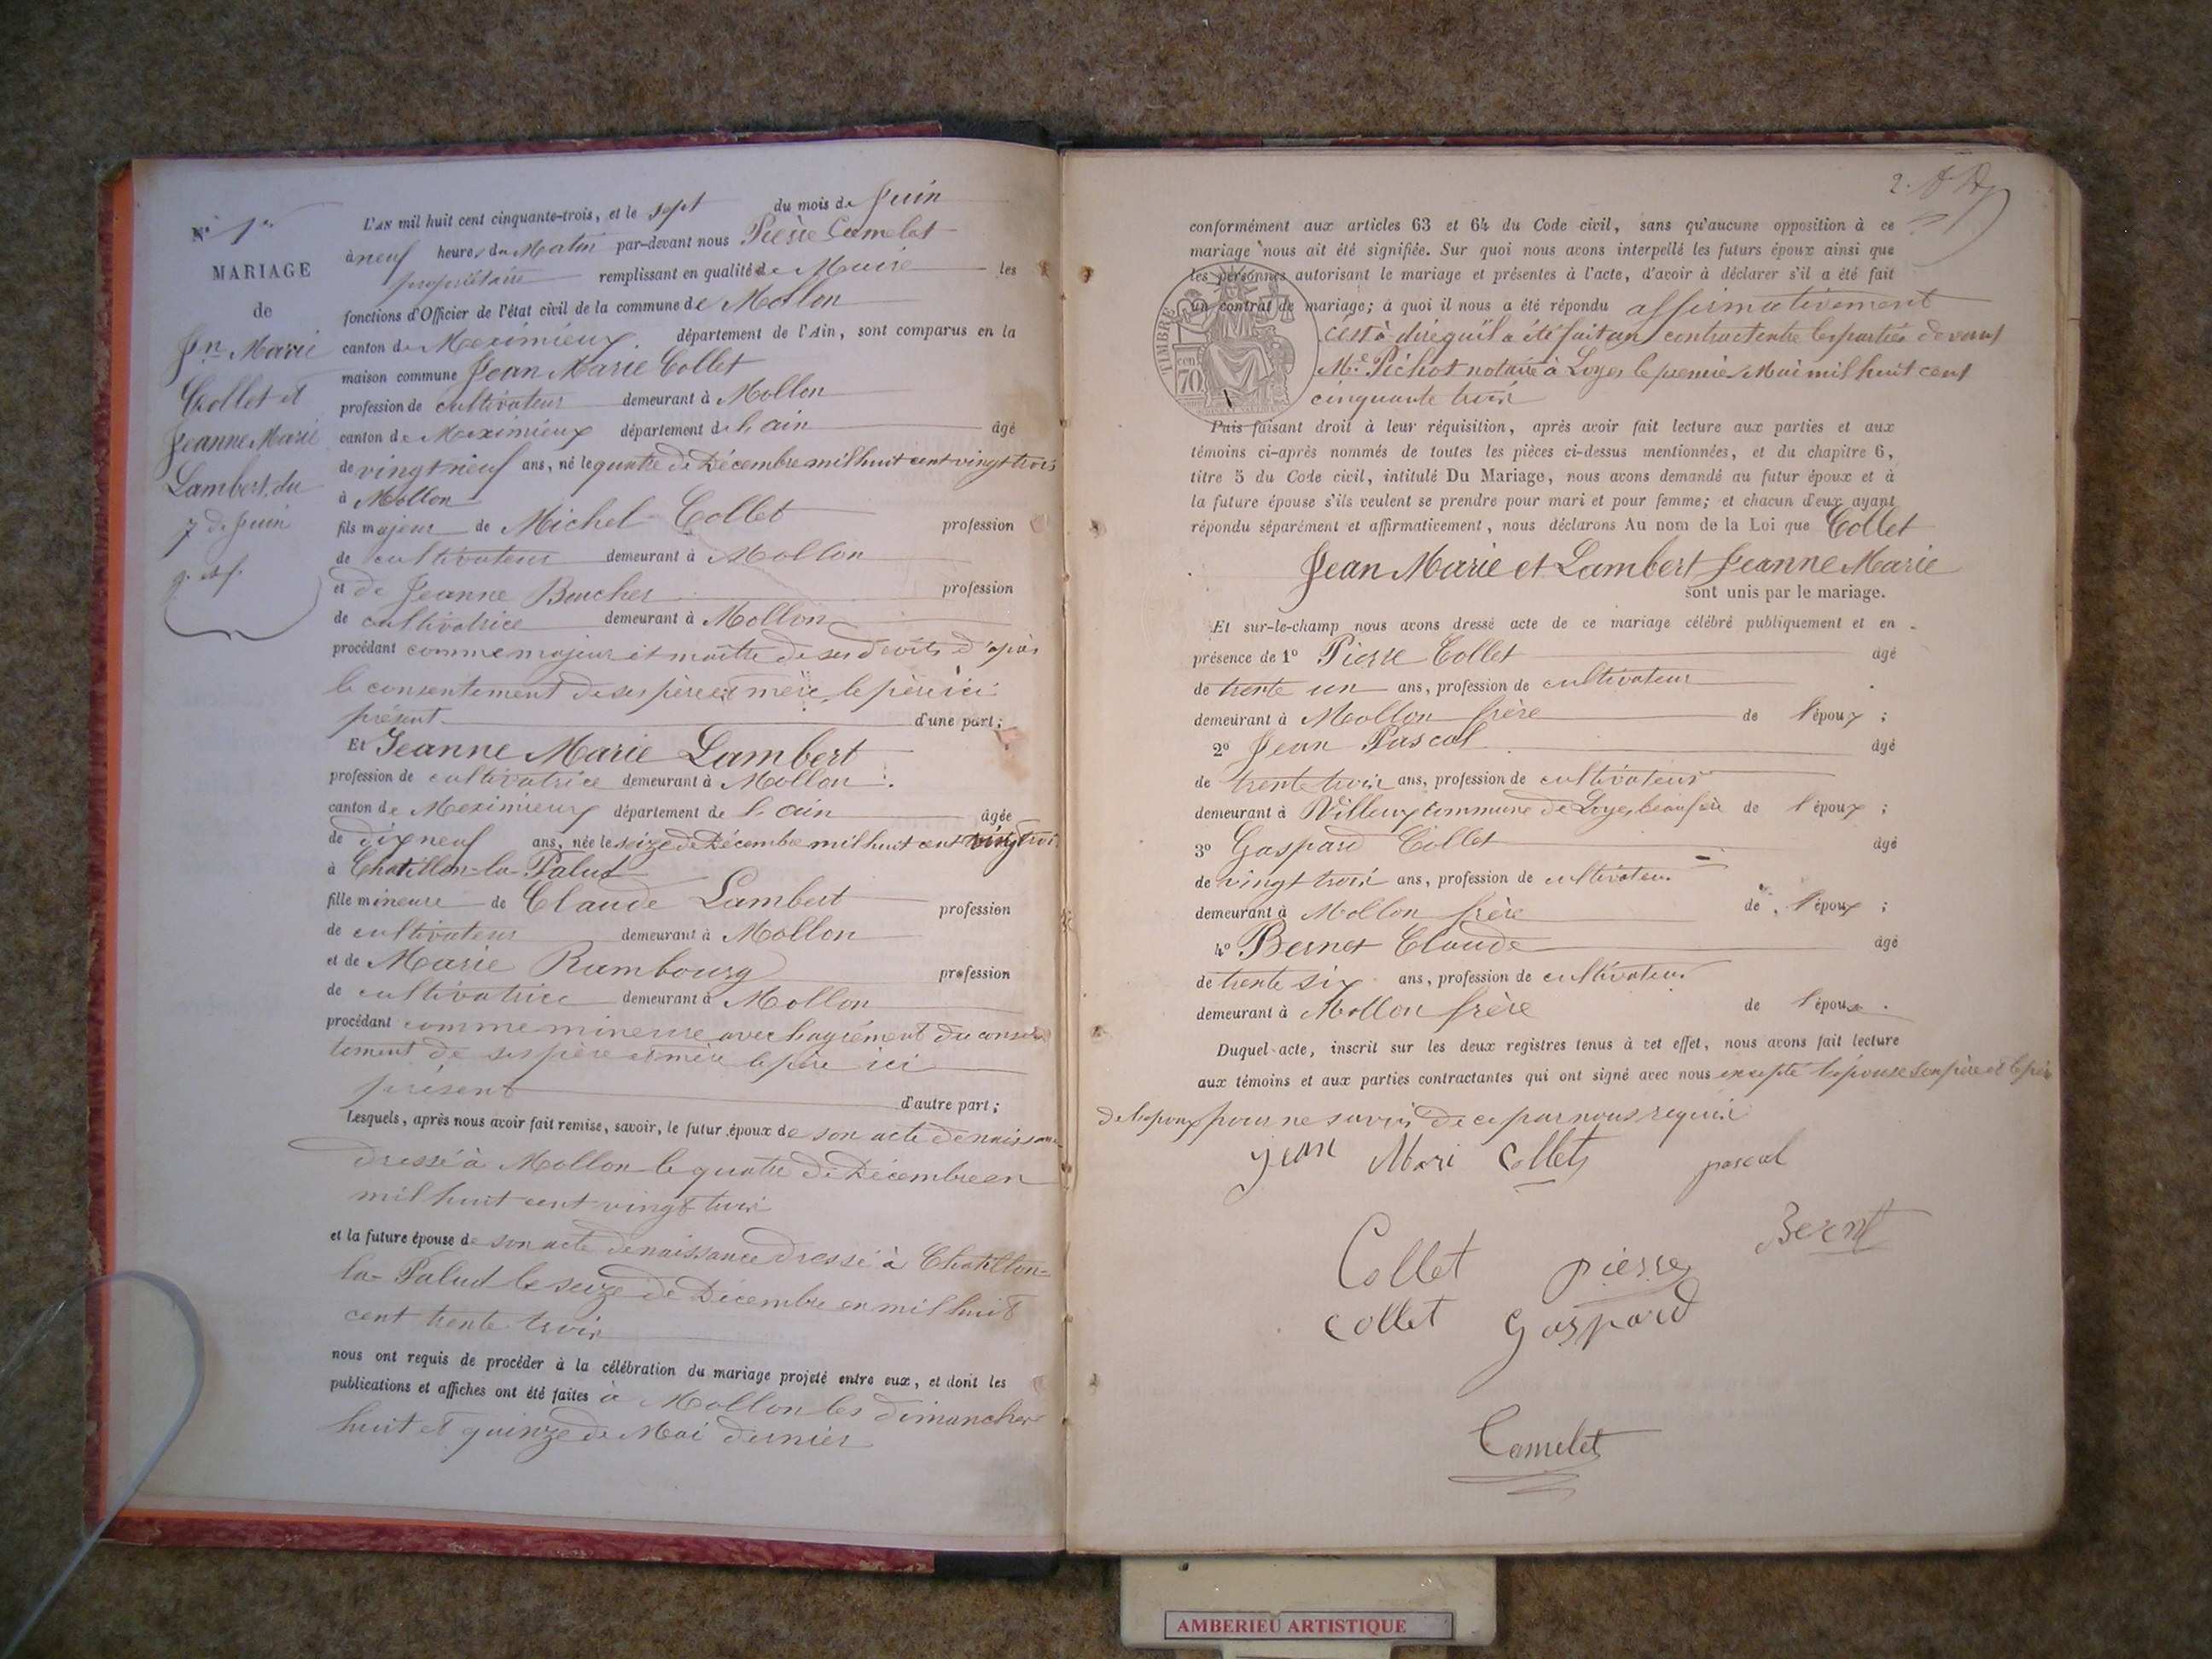 N° 1er
MARIAGE
de
Jn Marie
Collet et
Jeanne Marie
Lambert, du
7 de Juin
L'AN mil huit cent cinquante-trois, et le sept du mois de Juin
à neuf heures du Matin par-devant nous Pierre Comelet
propriétaire remplissant en qualité de Maire les
fonctions d'Officier de l'état civil de la commune de Mollon
canton de Meximieux, département de l'Ain, sont comparus en la
maison commune Jean Marie Collet
profession de cultivateur demeurant à Mollon
canton de Meximieux département de l'ain âgé
de vingt neuf ans, né le quatre de Décembre mil huit cent vingt trois
à Mollon
fils majeur de Michel Collet profession
de cultivateur demeurant à Mollon
et de Jeanne Boucher profession
de cultivatrice demeurant à Mollon
procédant comme majeur et maître de ses droits d'après
le consentement de ses père et mère, le père ici
présent d'une part;
Et Jeanne Marie Lambert
profession de cultivatrice demeurant à Mollon
canton de Meximieux département de l'ain âgée
de dix neuf ans, née le seize de Décembre mil huit cent trois
à Chatillon-la-Palud
fille mineure de Claude Lambert profession
de cultivateur demeurant à Mollon
et de Marie Rambourg profession
de cultivatrice demeurant à Mollon
procédant comme mineure avec l'agrément du consen
tement de ses père et mère le père ici
présent d'autre part;
Lesquels, après nous avoir fait remise, savoir, le futur époux de son acte de naissance
dressé à Mollon le quatre de Décembre en
mil huit cent vingt trois
et la future épouse de son acte de naissance dressé à Chatillon-
la-Palud le seize de Décembre en mil huit
cent trente trois
nous ont requis de procéder à la célébration du mariage projeté entre eux, et dont les
publications et affiches ont été faites à Mollon les dimanches
huit et quinze de Mai dernier
2.
conformément aux articles 63 et 64 du Code civil, sans qu'aucune opposition à ce
mariage nous ait été signifiée. Sur quoi nous avons interpellé les futurs époux ainsi que
les personnes autorisant le mariage et présentes à l'acte, d'avoir à déclarer s'il a été fait
un contrat de mariage; à quoi il nous a été répondu affirmativement
c'est à dire qu'il a été fait un contract entre les parties devant
Me Pichot notaire à Loyes le premier Mai mil huit cent
cinquante trois
TIMBRE
70
Puis faisant droit à leur réquisition, après avoir fait lecture aux parties et aux
témoins ci-après nommés de toutes les pièces ci-dessus mentionnées, et du chapitre 6,
titre 5 du Code civil, intitulé Du Mariage, nous avons demandé au futur époux et à
la future épouse s'ils veulent se prendre pour mari et pour femme; et chacun d'eux ayant
répondu séparément et affirmativement, nous déclarons Au nom de la Loi que Collet
Jean Marie et Lambert Jeanne Marie
sont unis par le mariage.
Et sur-le-champ nous avons dressé acte de ce mariage célébré publiquement et en
présence de 1° Pierre Collet âgé
de trente un ans, profession de cultivateur
demeurant à Mollon frère de l'époux ;
2° Jean Pascal âgé
de trente trois ans, profession de cultivateur
demeurant à Villeux commune de Loyes, beau frère de l'époux ;
3° Gaspard Collet âgé
de vingt trois ans, profession de cultivateur
demeurant à Mollon frère de l'époux ;
4° Bernet Claude âgé
de trente six ans, profession de cultivateur
demeurant à Mollon frère de l'épouse.
Duquel acte, inscrit sur les deux registres tenus à cet effet, nous avons fait lecture
aux témoins et aux parties contractantes qui ont signé avec nous excepté l'épouse son père et le père
de l'époux pour ne savoir de ce par nous requis
jean Mari Collet pascal
Bernet
Collet pierre
collet gaspard
Comelet
AMBERIEU ARTISTIQUE